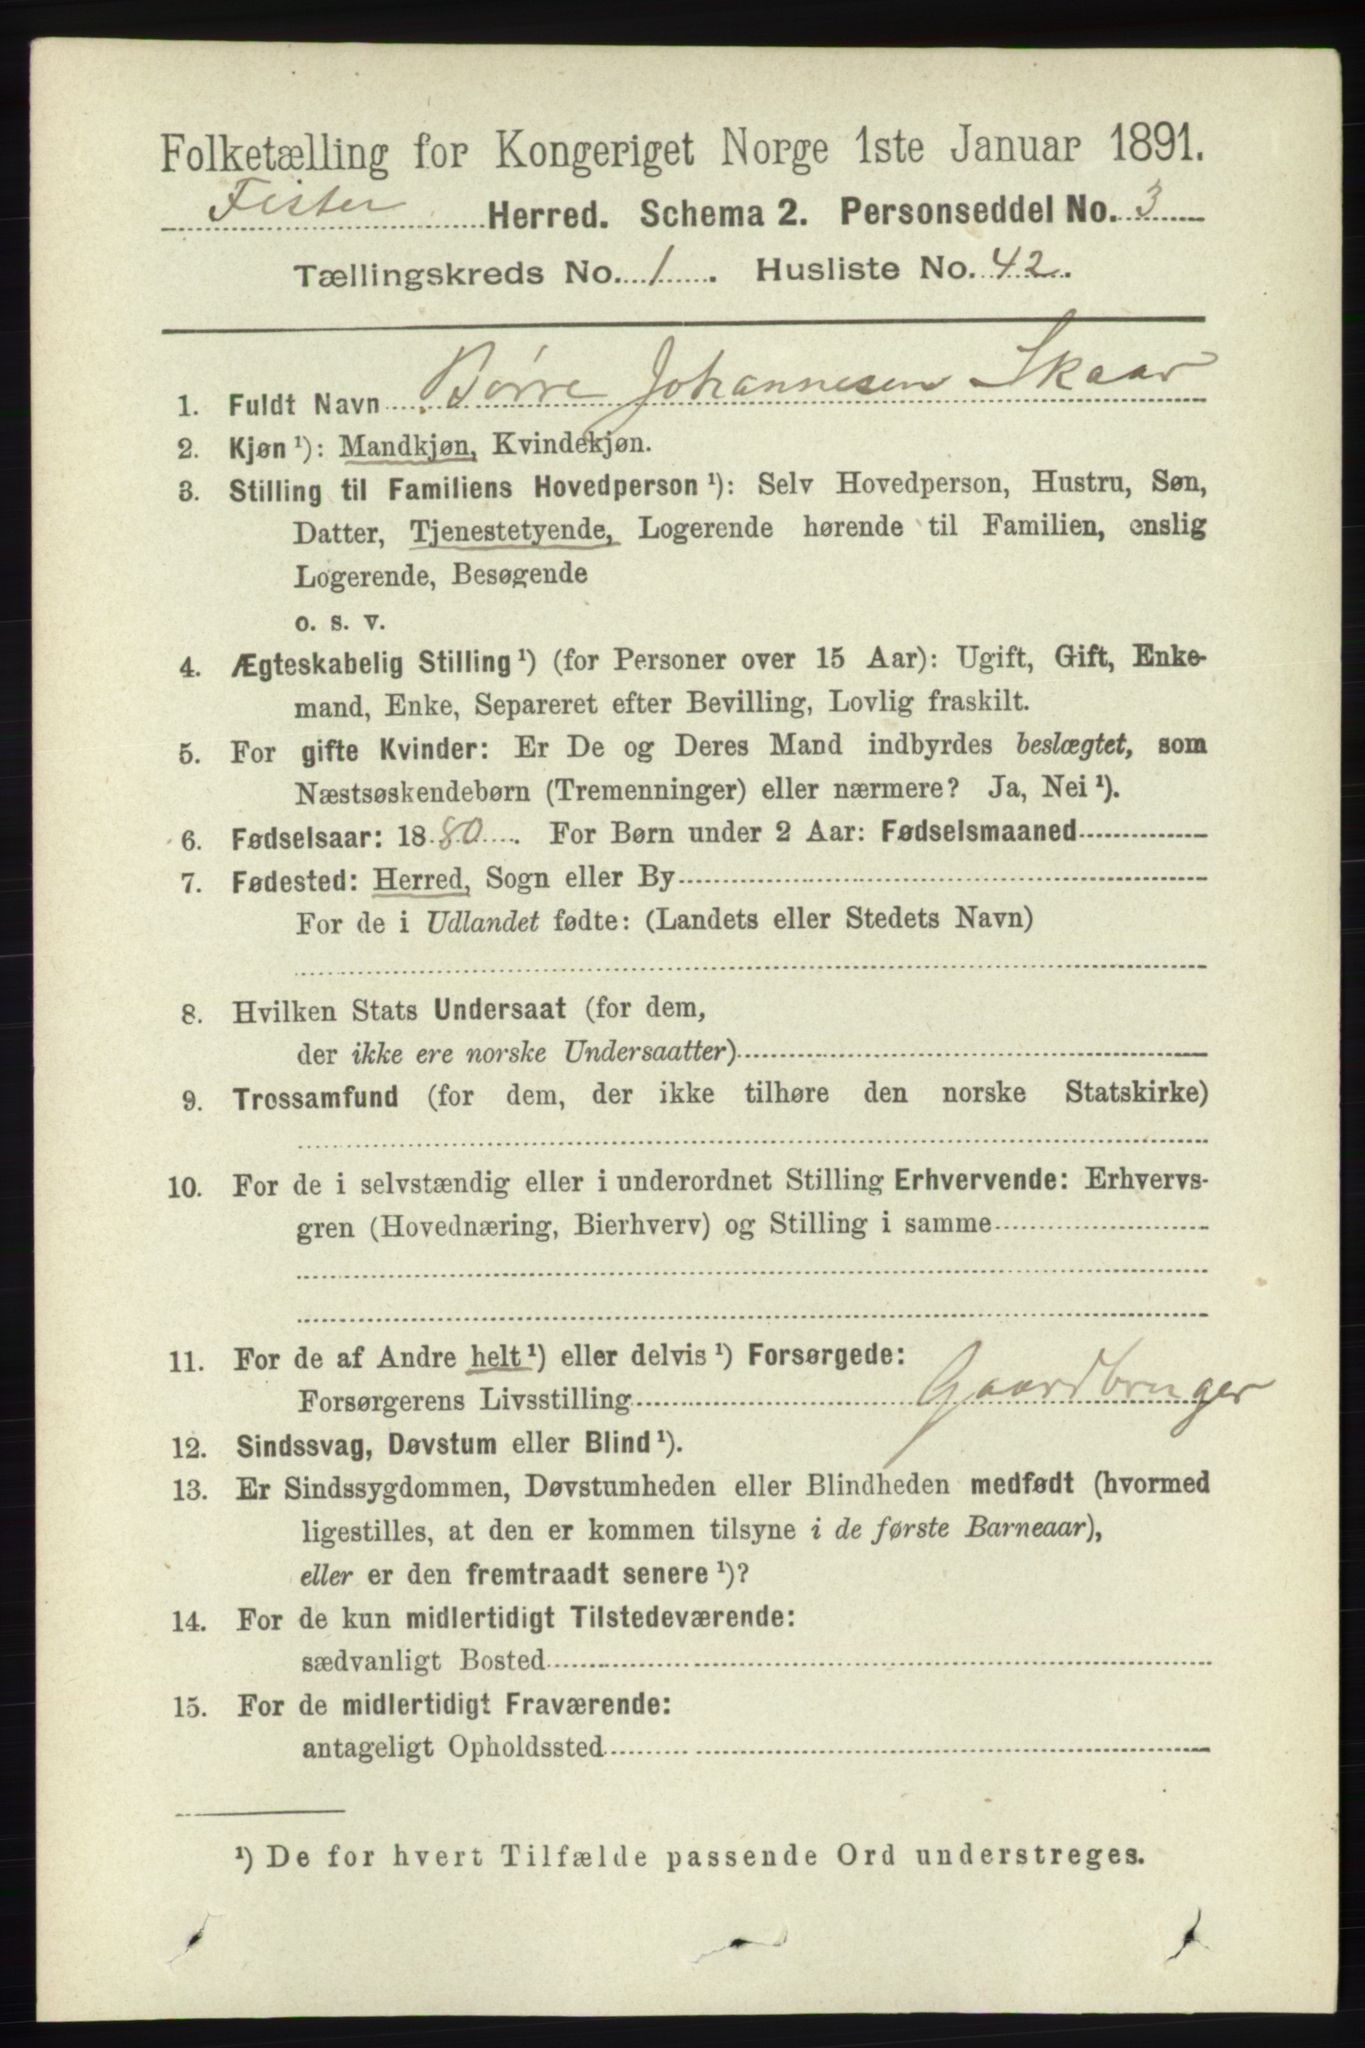 Folketælling for Kongeriget Norge 1ste Januar 1891.
Fister Herred. Schema 2. Personseddel No. 3
Tællingskreds No. 1. Husliste No. 42.
1. Fuldt Navn Børre Johannesen Skaar
2. Kjøn¹): Mandkjøn, Kvindekjøn.
3. Stilling til Familiens Hovedperson¹): Selv Hovedperson, Hustru, Søn,
Datter, Tjenestetyende, Logerende hørende til Familien, enslig
Logerende, Besøgende
o. s. v.
4. Ægteskabelig Stilling¹) (for Personer over 15 Aar): Ugift, Gift, Enke-
mand, Enke, Separeret efter Bevilling, Lovlig fraskilt.
5. For gifte Kvinder: Er De og Deres Mand indbyrdes beslægtet, som
Næstsøskendebørn (Tremenninger) eller nærmere? Ja, Nei¹).
6. Fødselsaar: 1880. For Børn under 2 Aar: Fødselsmaaned
7. Fødested: Herred, Sogn eller By
For de i Udlandet fødte: (Landets eller Stedets Navn)
8. Hvilken Stats Undersaat (for dem,
der ikke ere norske Undersaatter)
9. Trossamfund (for dem, der ikke tilhøre den norske Statskirke)
10. For de i selvstændig eller i underordnet Stilling Erhvervende: Erhvervs-
gren (Hovednæring, Bierhverv) og Stilling i samme
11. For de af Andre helt¹) eller delvis¹) Forsørgede:
Forsørgerens Livsstilling Gaardbruger
12. Sindssvag, Døvstum eller Blind¹).
13. Er Sindssygdommen, Døvstumheden eller Blindheden medfødt (hvormed
ligestilles, at den er kommen tilsyne i de første Barneaar),
eller er den fremtraadt senere¹)?
14. For de kun midlertidigt Tilstedeværende:
sædvanligt Bosted
15. For de midlertidigt Fraværende:
antageligt Opholdssted
¹) De for hvert Tilfælde passende Ord understreges.